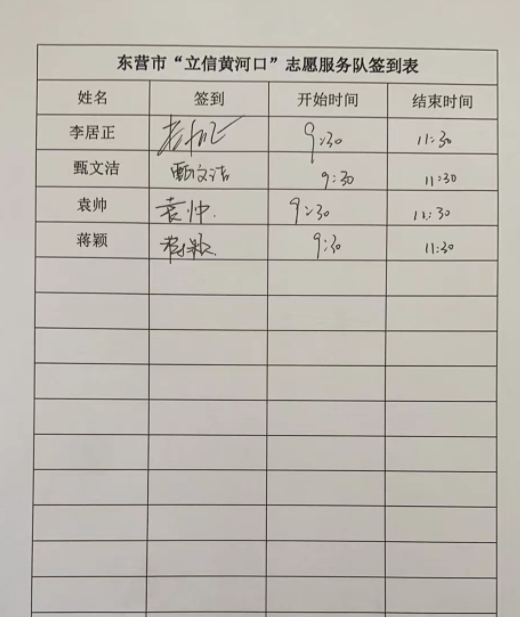 东营市“立信黄河口”志愿服务队签到表
姓名 签到 开始时间 结束时间
李居正 李居正 9:30 11:30
甄文洁 甄文洁 9:30 11:30
袁帅 袁帅 9:30 11:30
蒋颖 蒋颖 9:30 11:30